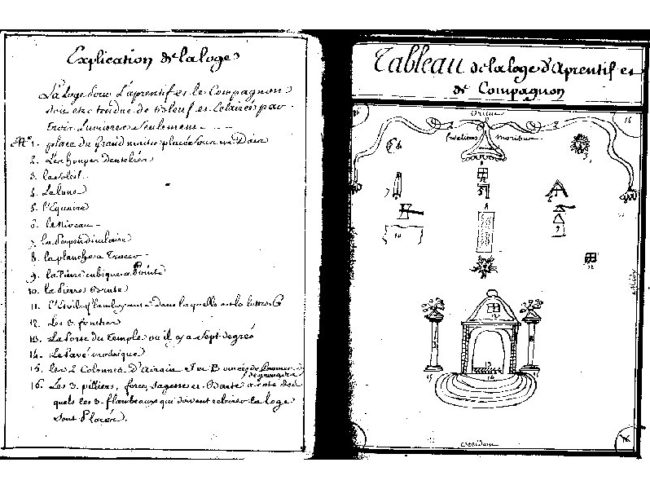 Explication de la loge
La Loge pour L'aprentif et le Compagnon
doit etre tendue de Bleuf et Eclairée par
trois Lumieres Seulement
N.os 1. place du grand maitre placée sous un Daix
2. Les houpes dentelées
3. Le Soleil
4. La lune
5. l'Equaire
6. le Niveau
7. la Perpendiculaire
8. la planche a Tracer
9. la Pierre cubique a Pointe
10. la Pierre Brute
11. l'Etoile flamboyante dans laquelle est la lettre G
12. Les 3 fenetres
13. La Porte du Temple ou il y a Sept degrés
14. Le Pavé mosaique
15. les 2 Colonnes d'Airain J et B ornées de Pommes de grenades
16. Les 3 pilliers, force, Sagesse et Beauté a coté des
quels les 3 flambeaux qui doivent eclairer la loge
Sont Placés.
Tableau de la loge d'Aprentif et
de Compagnon
Orient
16
12
10
12
13
14
15
15
16
Occident